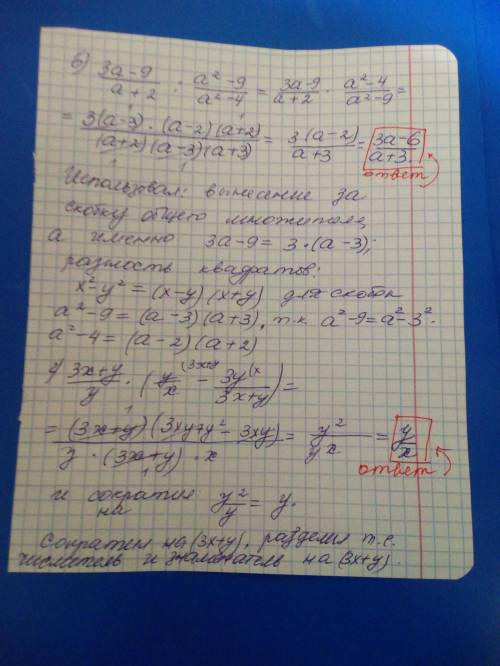 б) (3a-9)/(a+2) : (a²-9)/(a²-4) = (3a-9)/(a+2) · (a²-4)/(a²-9) =
= (3(a-3)·(a-2)(a+2))/((a+2)(a-3)(a+3)) = (3(a-2))/(a+3) = (3a-6)/(a+3)
ответ
Использовал: вынесение за
скобку общего множителя,
а именно 3a-9 = 3·(a-3);
разность квадратов:
x²-y² = (x-y)(x+y) для скобок
a²-9 = (a-3)(a+3), т.к. a²-9=a²-3².
a²-4 = (a-2)(a+2)
(3x+y)/y · (y/x (3x+y) - 3y/(3x+y) (x) =
= ((3x+y)(3xy+y²-3xy))/(y·(3x+y)·x) = y²/yx = y/x
ответ
и сократил y²/y = y.
на
Сократил на (3x+y), разделил т.е.
числитель и знаменатель на (3x+y).